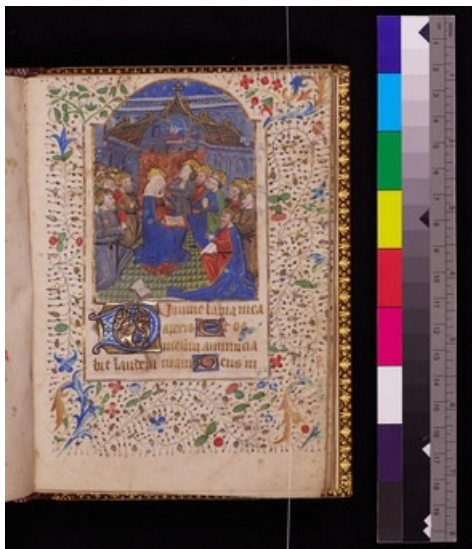 Domine labia mea
aperies Et os
meum annuncia
bit laudem tuam Deus in